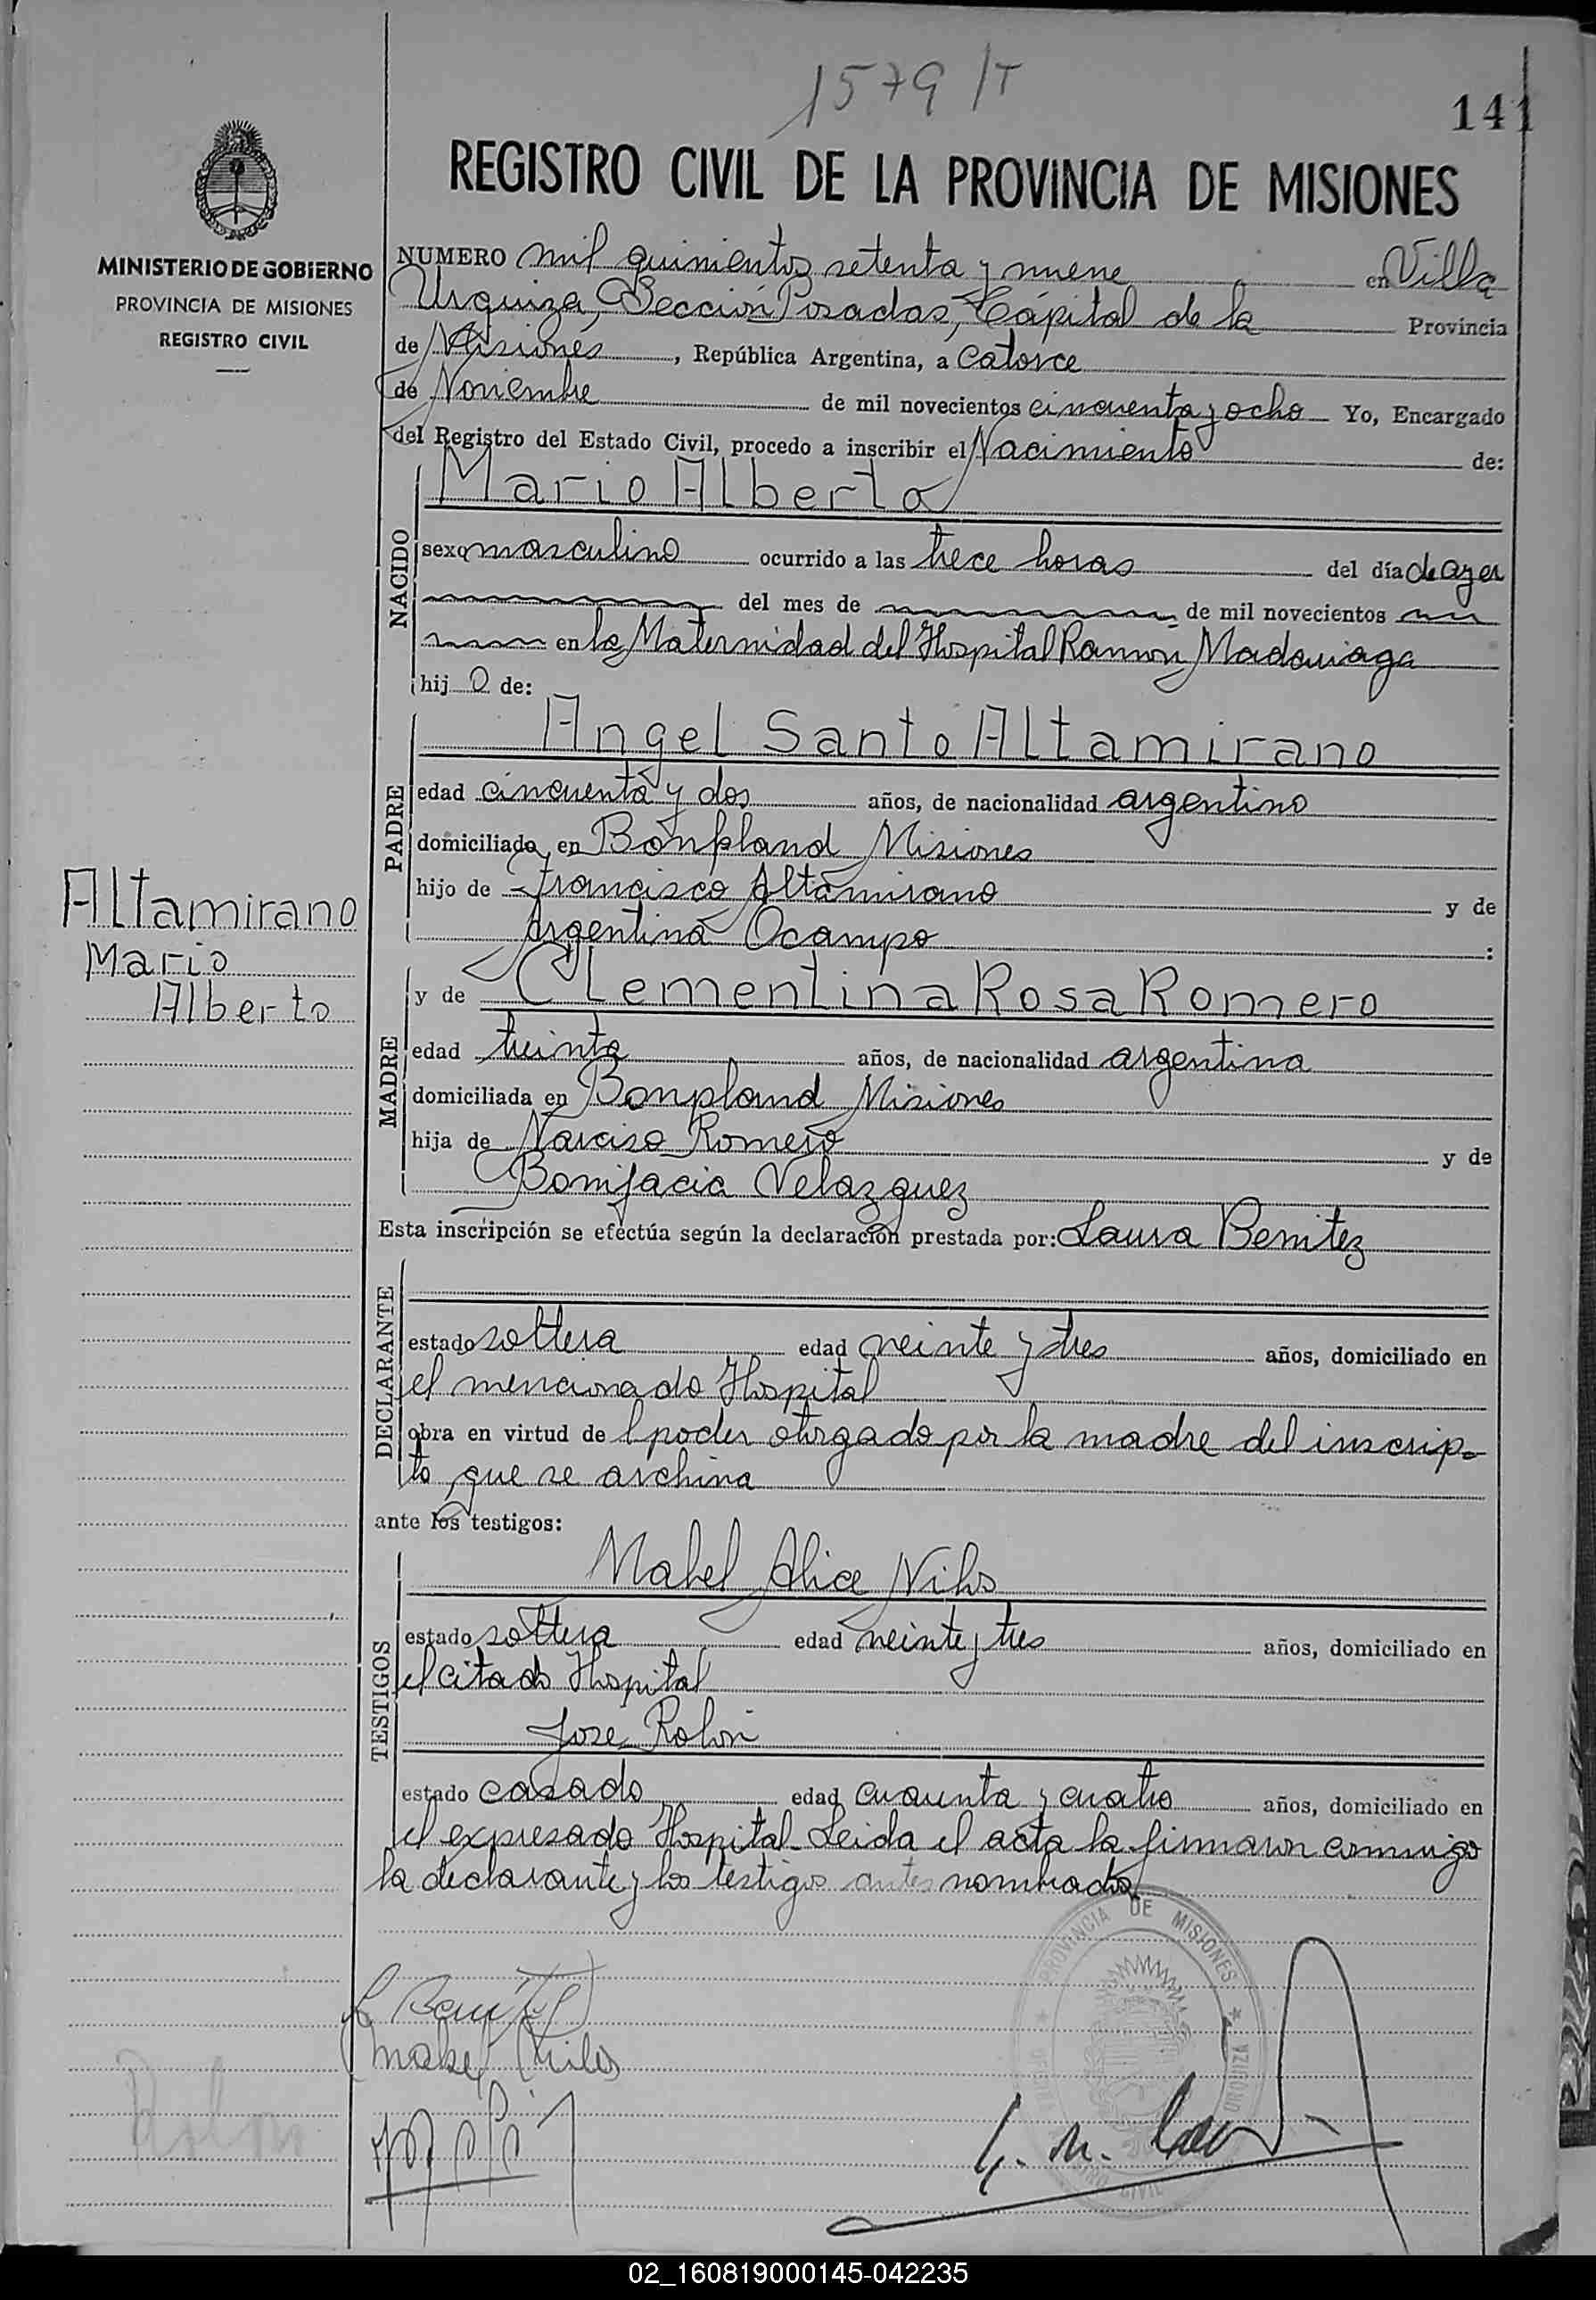 1579/T
141
REGISTRO CIVIL DE LA PROVINCIA DE MISIONES
MINISTERIO DE GOBIERNO
PROVINCIA DE MISIONES
REGISTRO CIVIL
NUMERO mil quinientos setenta y nueve en Villa
Urquiza, Sección Posadas, Cápital de la Provincia
de Misiones, República Argentina, a catorce
de Noviembre de mil novecientos cincuenta y ocho Yo, Encargado
del Registro del Estado Civil, procedo a inscribir el Nacimiento de:
NACIDO
Mario Alberto
sexo masculino ocurrido a las trece horas del día de ayer
del mes de de mil novecientos
en la Maternidad del Hospital Ramon Madariaga
hijo de:
PADRE
Angel Santo Altamirano
edad cincuenta y dos años, de nacionalidad argentino
domiciliado en Bonpland Misiones
hijo de Francisco Altamirano y de
Argentina Ocampo :
Altamirano
Mario
Alberto
MADRE
y de Clementina Rosa Romero
edad treinta años, de nacionalidad argentina
domiciliada en Bonpland Misiones
hija de Narciso Romero y de
Bonifacia Velazquez
Esta inscripción se efectúa según la declaración prestada por: Laura Benitez
DECLARANTE
estado soltera edad veinte y tres años, domiciliado en
el mencionado Hospital
obra en virtud de l poder otorgado por la madre del inscrip-
to, que se archiva
ante los testigos:
TESTIGOS
Mabel Alice Vilos
estado soltera edad veinte y tres años, domiciliado en
el citado Hospital
Jose Rolon
estado casado edad cuarenta y cuatro años, domiciliado en
el expresado Hospital - Leida el acta la firmaron conmigo
la declarante y los testigos antes nombrados
PROVINCIA DE MISIONES
L Benitez
Mabel Vilos
02_160819000145-042235